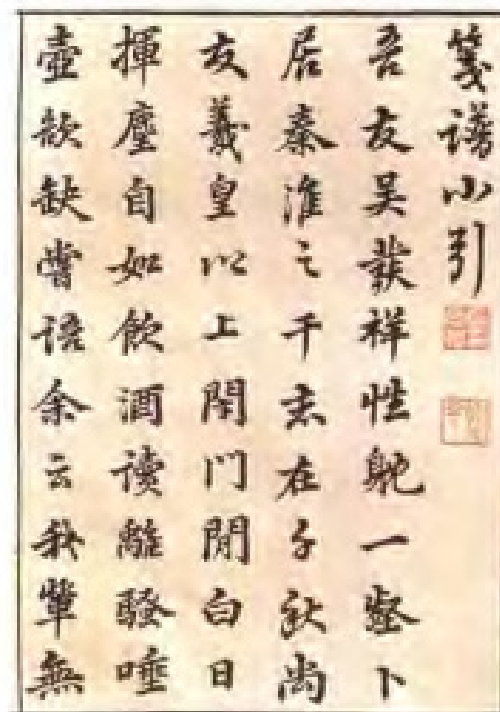 箋譜小引
吾友吴發祥性躭一壑卜
居秦淮之干志在千秋尚
友羲皇以上閉門閒白日
揮麈自如飲酒讀離騷唾
壺欲缺嘗語余云我輩無